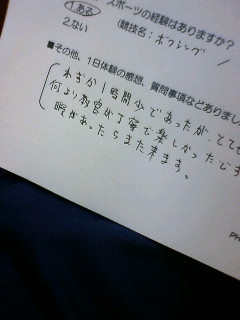 1.ある
スポーツの経験はありますか?
2.ない
(競技名:ボクシング
■その他、1日体験の感想、質問事項などありまし
わずか1時間少であったが、とても
何より教官が丁寧で楽しかったです
暇があったらまた来ます。